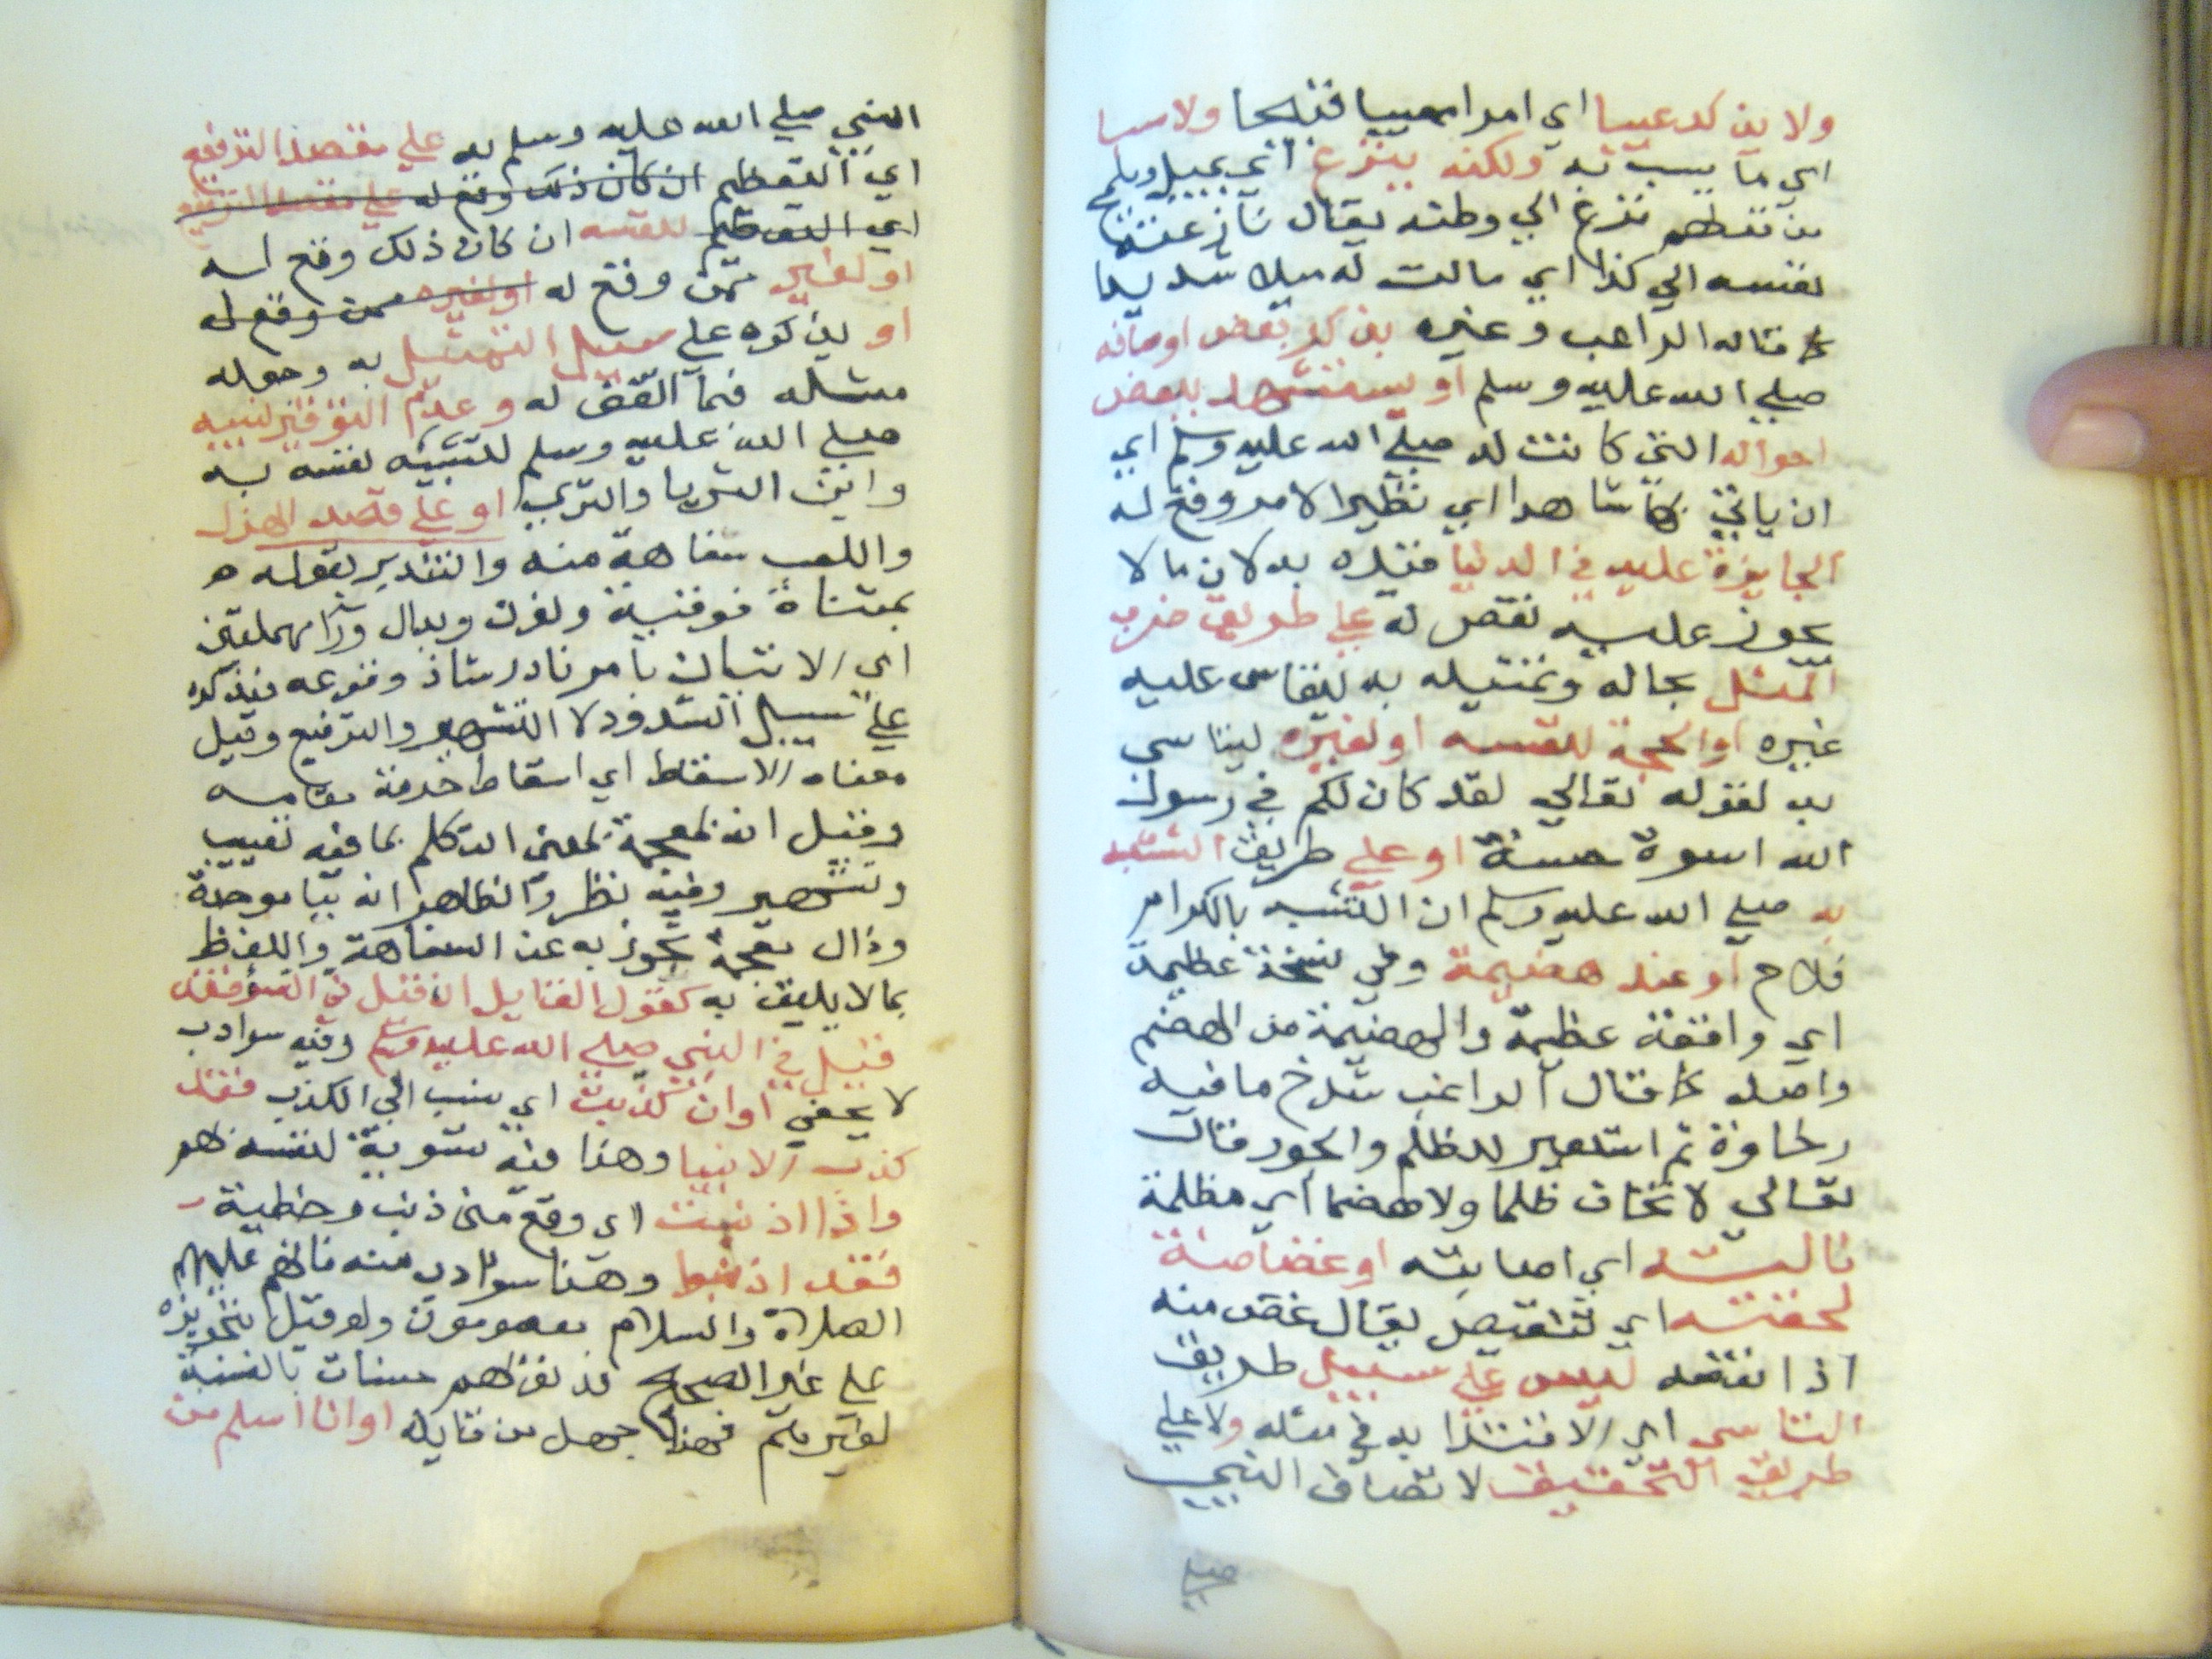 ولا يذكر عيبا اي امرا معيبا قبيحا ولا سبا
اي ما يسب به ولكنه ينزع اي يميل ويلمح
من نزع الي وطنه يقال نازعته
نفسه الي كذا اي مالت له ميلا شديدا
كما قاله الراغب وغيره بذكر بعض اوصافه
صلي الله عليه وسلم او يستشهد ببعض
احواله التي كانت له صلي الله عليه وسلم اي
ان ياتي بها شاهدا اي نظيرا لامر وقع له
الجايزة عليه في الدنيا قيده به لان ما لا
يجوز عليه نقص له علي طريق ضرب
المثل بحاله وتمثيله به ليقاس عليه
غيره او الحجة لنفسه او لغيره ليتاسي
به لقوله تعالي لقد كان لكم في رسول
الله اسوة حسنة او علي طريق التشبه
به صلي الله عليه وسلم ان التشبه بالكرام
فلاح او عند هضيمة وفي نسخة عظيمة
اي واقعة عظيمة والهضيمة من الهضم
واصله كما قال الراغب شدخ ما فيه
رخاوة ثم استعير للظلم والجور قال
تعالي لا يخاف ظلما ولا هضما اي مظلمة
نالته اي اصابته او غضاضة
لحقته اي تنقيص يقال غض منه
اذا نقصه ليس علي سبيل طريق
التاسي اي الاقتدا به في مثله ولا علي
طريق التحقيق لاتصاف النبي
صلي
النبي صلي الله عليه وسلم به علي مقصد الترفيع
اي التعظيم ان كان ذلك وقع له علي مقصد الترفيع
اي التعظيم لنفسه ان كان ذلك وقع له
او لغيره ممن وقع له او لغيره ممن وقع له
او يذكره علي سبيل التمثيل به وجعله
مثله فيما اتفق له وعدم التوقير لنبيه
صلي الله عليه وسلم لتشبيه نفسه به
واين الثريا والثري او علي قصد الهزل
واللعب سفاهة منه والتندير بقوله
بمثناة فوقية ونون ودال ورا مهملتين
اي الاتيان بامر نادر شاذ وقوعه فيذكره
علي سبيل الشذوذ لا التشهير والترفيع وقيل
معناه الاسقاط اي اسقاط حرمة مقامه
وقيل انه بمعجمة بمعني التكلم بما فيه تعييب
وتشهير وفيه نظر والظاهر انه ببا موحدة
وذال معجمة تجوز به عن السفاهة واللفظ
بما لا يليق به كقول القايل ان قيل في السو فقد
قيل في النبي صلي الله عليه وسلم وفيه سو ادب
لا يخفي او ان كذبت اي نسب الي الكذب فقد
كذب الانبيا وهذا فيه تسوية لنفسه بهم
واذا اذنبت اي وقع مني ذنب وخطية
فقد اذنبوا وهذا سو ادب منه فانهم عليهم
الصلاة والسلام معصومون ولو قيل بتجويزه
علي غير الصحيح فذنوبهم حسنات بالنسبة
لغيرهم فهذا جهل من قايله او انا اسلم من